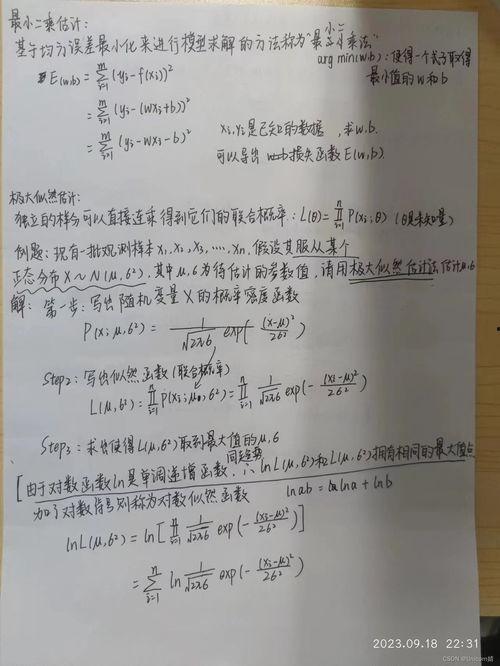 最小二乘估计:
基于均方误差最小化来进行模型求解的方法称为"最小二乘法"
arg min(w,b): 使得一个式子取得
最小值的w和b
E(w,b) = Σ_{i=1}^{m} (yi - f(xi))²
= Σ_{i=1}^{m} (yi - (wxi+b))²
= Σ_{i=1}^{m} (yi - wxi - b)²
xi, yi是已知的数据, 求w,b.
可以导出 损失函数E(w,b).
极大似然估计:
独立的样本可以直接连乘得到它们的联合概率: L(θ) = Π_{i=1}^{n} P(xi;θ) (θ是未知量)
例题: 现有一批观测样本x1, x2, x3, ...., xn, 假设其服从某个
正态分布X~N(μ,6²), 其中μ,6为待估计的参数值, 请用极大似然估计法估计μ,6
解: 第一步: 写出随机变量X的概率密度函数
P(x;μ,6²) = 1/√2π6 exp(-(x-μ)²/26²)
Step2: 写出似然函数(联合概率)
L(μ,6²) = Π_{i=1}^{n} P(xi;μ,6²) = Π_{i=1}^{n} 1/√2π6 exp(-(xi-μ)²/26²)
Step3: 求出使得L(μ,6²)取到最大值的μ,6
[由于对数函数ln是单调递增函数, ∴ lnL(μ,6²)和L(μ,6²)拥有相同的最大值点
加了对数符号则称为对数似然函数 lnab = lna + lnb
lnL(μ,6²) = ln[Π_{i=1}^{n} 1/√2π6 exp(-(xi-μ)²/26²)]
= Σ_{i=1}^{n} ln 1/√2π6 exp(-(xi-μ)²/26²)
2023.09.18 22:31